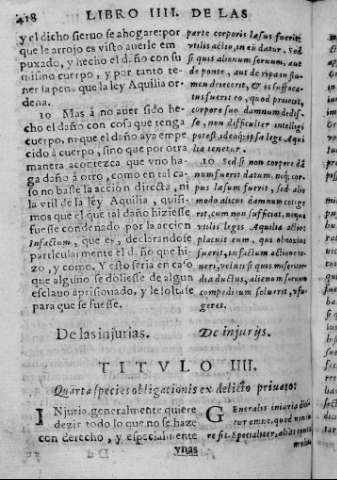 418 LIBRO IIII. DE LAS
y el dicho sieruo se ahogare: por
que le arrojo es visto auerle em
puxado, y hecho el daño con su
mismo cuerpo, y por tanto te-
ner la pena que la ley Aquilia or-
dena.
10 Mas à no auer sido he-
cho el daño con cosa que tenga
cuerpo, ni que el daño aya empe
cido à cuerpo, sino que por otra
manera acontezca que vno ha-
ga daño à otro, como en tal ca-
so no baste la acción directa, ni
la vtil de la ley Aquilia, quisi-
mos que el que tal daño hiziesse
fuesse condenado por la accion
Infactum, que es, declarandose
particularmente el daño que hi-
zo, y como. Y esto seria en caso
que alguno se doliesse de algun
esclauo aprisionado, y le soltase
para que se fuesse.
parte corporis læsus fuerit:
vtilis actio, in eū datur. Sed
si quis alienum seruum, aut
de ponte, aut de ripa in flu-
men deiecerit, & is suffoca-
tus fuerit eo, quod proiecit,
corpore suo damnum dedis-
se, non difficulter intelligi
potest, ideoq; ipsa lege Aqui
lia tenetur.
10 Sed si non corpore dā
num fuerit datum. neq; cor-
pus læsum fuerit, sed alio
modo alicui damnum contige
rit, cum non sufficiat, neque
vtilis legis Aquiliæ actio:
placuit eum, qui obnoxius
fuerit, in factum actione te-
neri, veluti si quis misericor-
dia ductus, alienum seruum
compeditum soluerit, vt fu-
geret.
De las injurias.
De injurijs.
TITVLO IIII.
Quarta species obligationis ex delicto priuato:
INjuria generalmente quiere
dezir todo lo que no se haze
con derecho, y especialmente
vnas
GEneralis iniuria dici
tur omne, quod non iu
re fit. Specialiter,